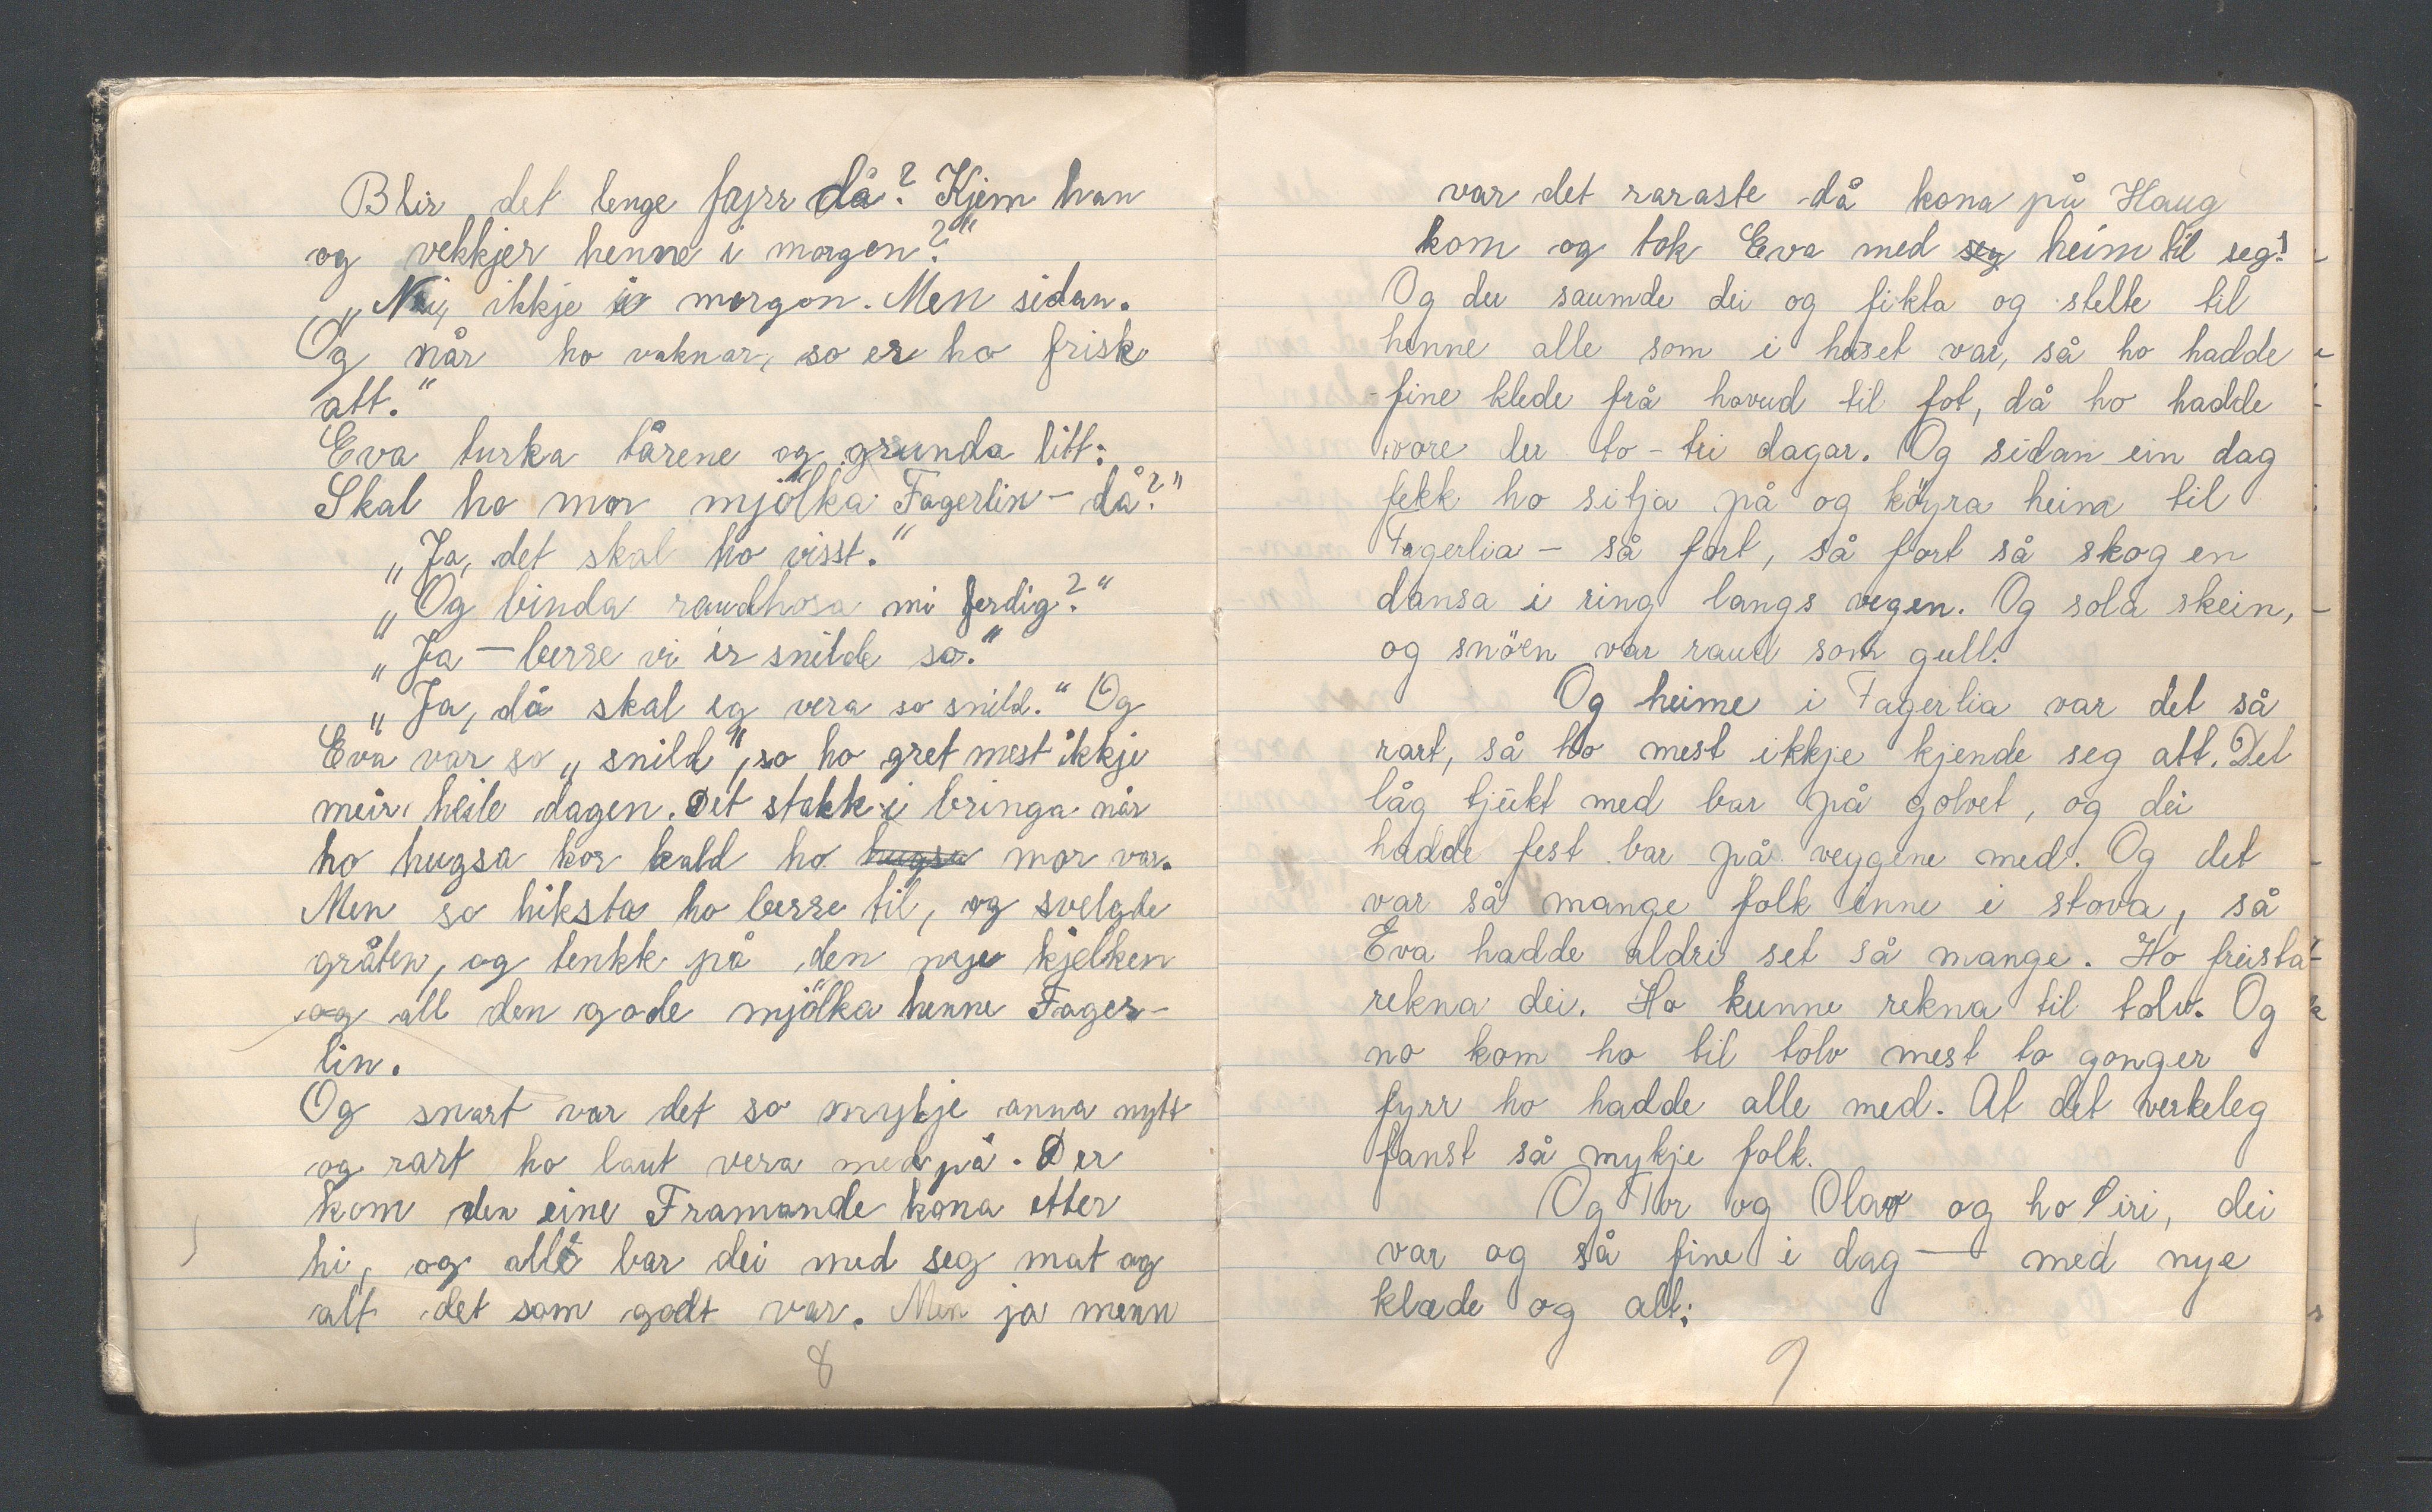 Blir det lenge fyrr då? Kjem han
og vekkjer henne i morgon?"
„Nei, ikkje i morgon. Men sidan.
Og når ho vaknar, so er ho frisk
att."
Eva turka tårene og grunda litt:
Skal ho mor mjölka Fagerlin - då?"
„Ja, det skal ho visst."
„Og binda raudhosa mi ferdig?"
„Ja - berre vi er snilde so."
„Ja, då skal eg vera so snild." Og
Eva var so „snild", so ho gret mest ikkje
meir heile dagen. Det stakk i bringa når
ho hugsa kor kald ho hugsa mor var.
Men so hiksta ho berre til, og svelgde
gråten, og tenkk på den nye kjelken
og all den gode mjölka henne Fager-
lin.
Og snart var det so mykje anna nytt
og rart ho laut vera med på. Der
kom den eine Framande kona etter
hi, og alle bar dei med seg mat og
alt det som godt var. Men ja menn
8
var det raraste då kona på Haug
kom og tok Eva med seg heim til seg!
Og der saumde dei og fikta og stelte til
henne alle som i huset var, så ho hadde
fine klede frå hovud til fot, då ho hadde
vore der to - tri dagar. Og sidan ein dag
fekk ho sitja på og köyra heim til
Fagerlia - så fort, så fort så skogen
dansa i ring langs vegen. Og sola skein,
og snöen var raud som gull.
Og heime i Fagerlia var det så
rart, så ho mest ikkje kjende seg att. Det
låg tjukt med bar på golvet, og dei
hadde fest bar på veggene med. Og det
var så mange folk inne i stova, så
Eva hadde aldri set så mange. Ho freista
rekna dei. Ho kunne rekna til tolv. Og
no kom ho til tolv mest to gonger
fyrr ho hadde alle med. At det verkeleg
fanst så mykje folk.
Og Tor og Olav og ho Siri, dei
var og så fine i dag - med nye
klæde og alt;
9